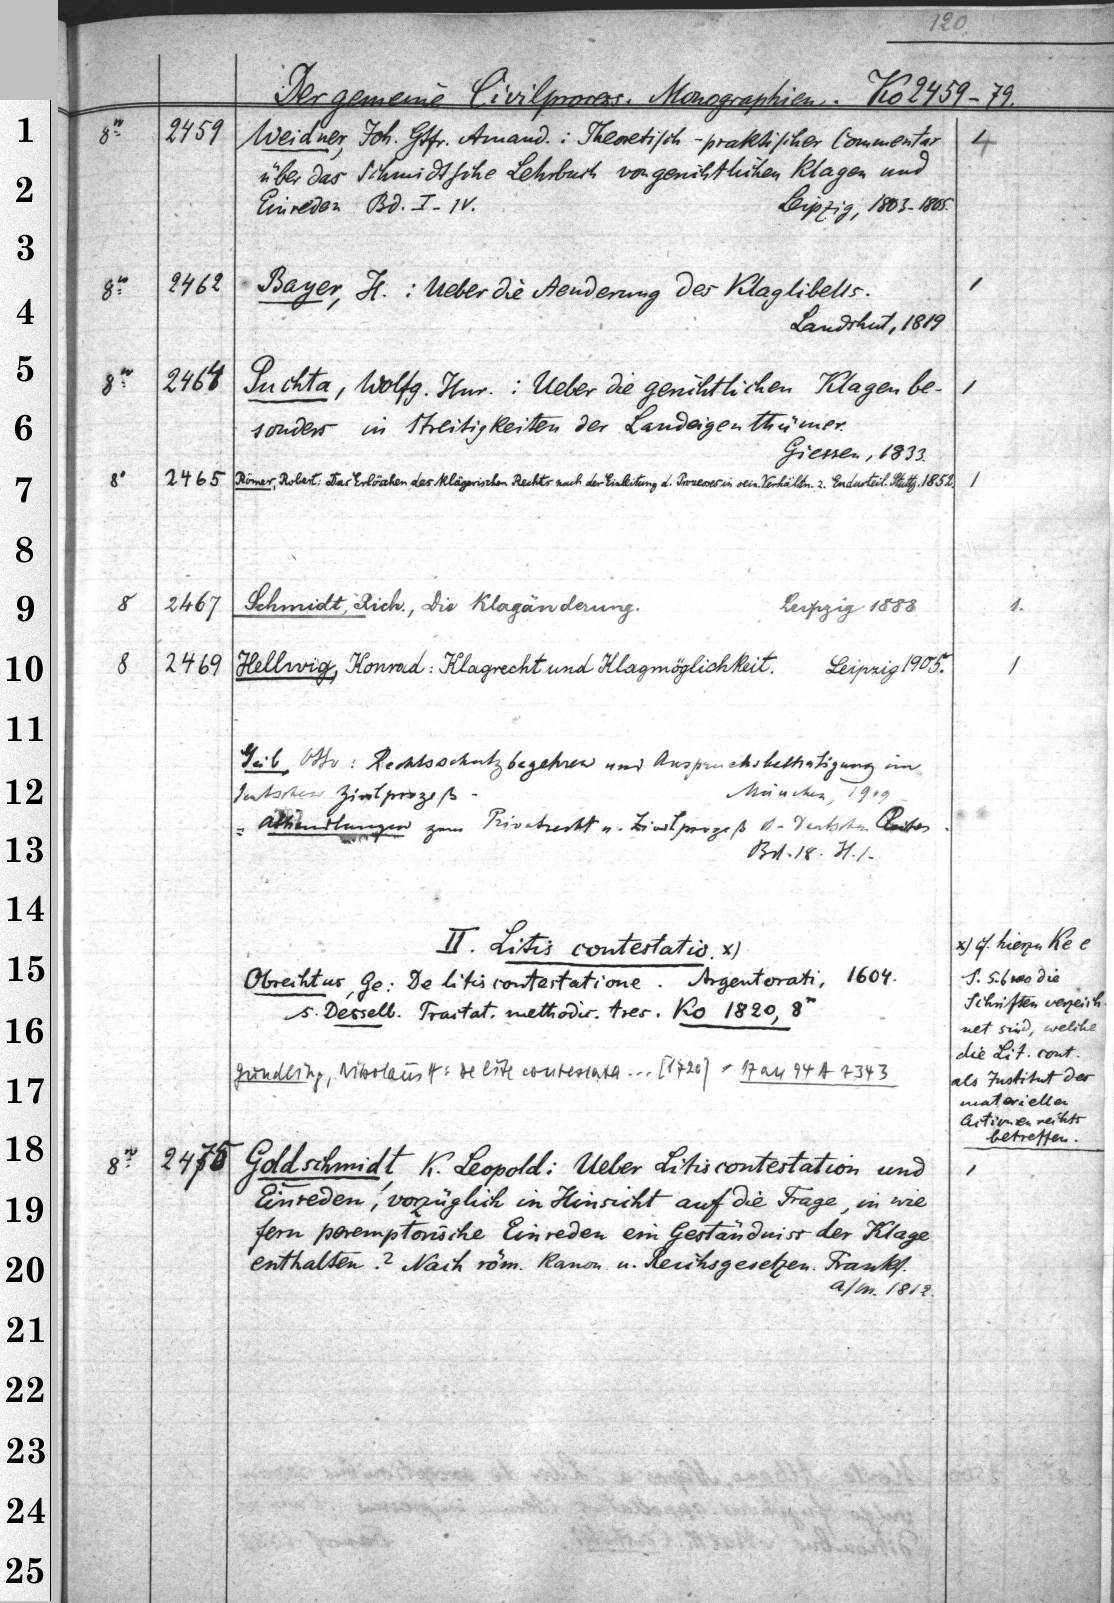 120
Der gemeine Civilprocess. Monographien. Ko 2459-79.
1
8º 2459 Weidner, Joh. Gfr. Amand.: Theoretisch-praktischer Commentar 4
2
über das Schmidtsche Lehrbuch von gerichtlichen Klagen und
Einreden Bd. I-IV. Leipzig, 1803-1805.
3
8º 2462 Bayer, H.: Ueber die Aenderung des Klaglibells. 1
4
Landshut, 1819
5
8º 2464 Puchta, Wolfg. Hnr.: Ueber die gerichtlichen Klagen be- 1
6
sonders in Streitigkeiten der Landeigenthümer.
Giessen, 1833.
7
8º 2465 Römer, Robert: Das Erlöschen des klägerischen Rechts nach der Einleitung d. Prozesses in sein. Verhältn. z. Endurteil. Stuttg. 1852. 1
8
9
8 2467 Schmidt, Rich., Die Klagänderung. Leipzig 1888 1.
10
8 2469 Hellwig, Konrad: Klagrecht und Klagmöglichkeit. Leipzig 1905. 1
11
Geib, Otto: Rechtsschutzbegehren und Anspruchsbethätigung im
12
deutschen Zivilprozeß - München, 1909
= Abhandlungen zum Privatrecht u. Zivilprozeß d. Deutschen Reiches.
13
Bd. 18. H. 1.
14
II. Litis contestatio. x)
15
Obrechtus, Ge: De litis contestatione. Argentorati, 1604.
16
s. Desselb. Tractat. methodic. tres. Ko 1820, 8º
17
Gundling, Nikolaus H: De lite contestata ... [1720] - 17 an 94 A 7343
x) cf. hierzu Ke e
S. 56 wo die
Schriften verzeich-
net sind, welche
die Lit. cont.
als Institut des
materiellen
Actionenrechts
betreffen.
18
8º 2475 Goldschmidt, K. Leopold: Ueber Litiscontestation und 1
19
Einreden, vorzüglich in Hinsicht auf die Frage, in wie
fern peremptorische Einreden ein Geständniss der Klage
20
enthalten? Nach röm. kanon. u. Reichsgesetzen. Frankf.
a/m. 1812.
21
22
23
24
25